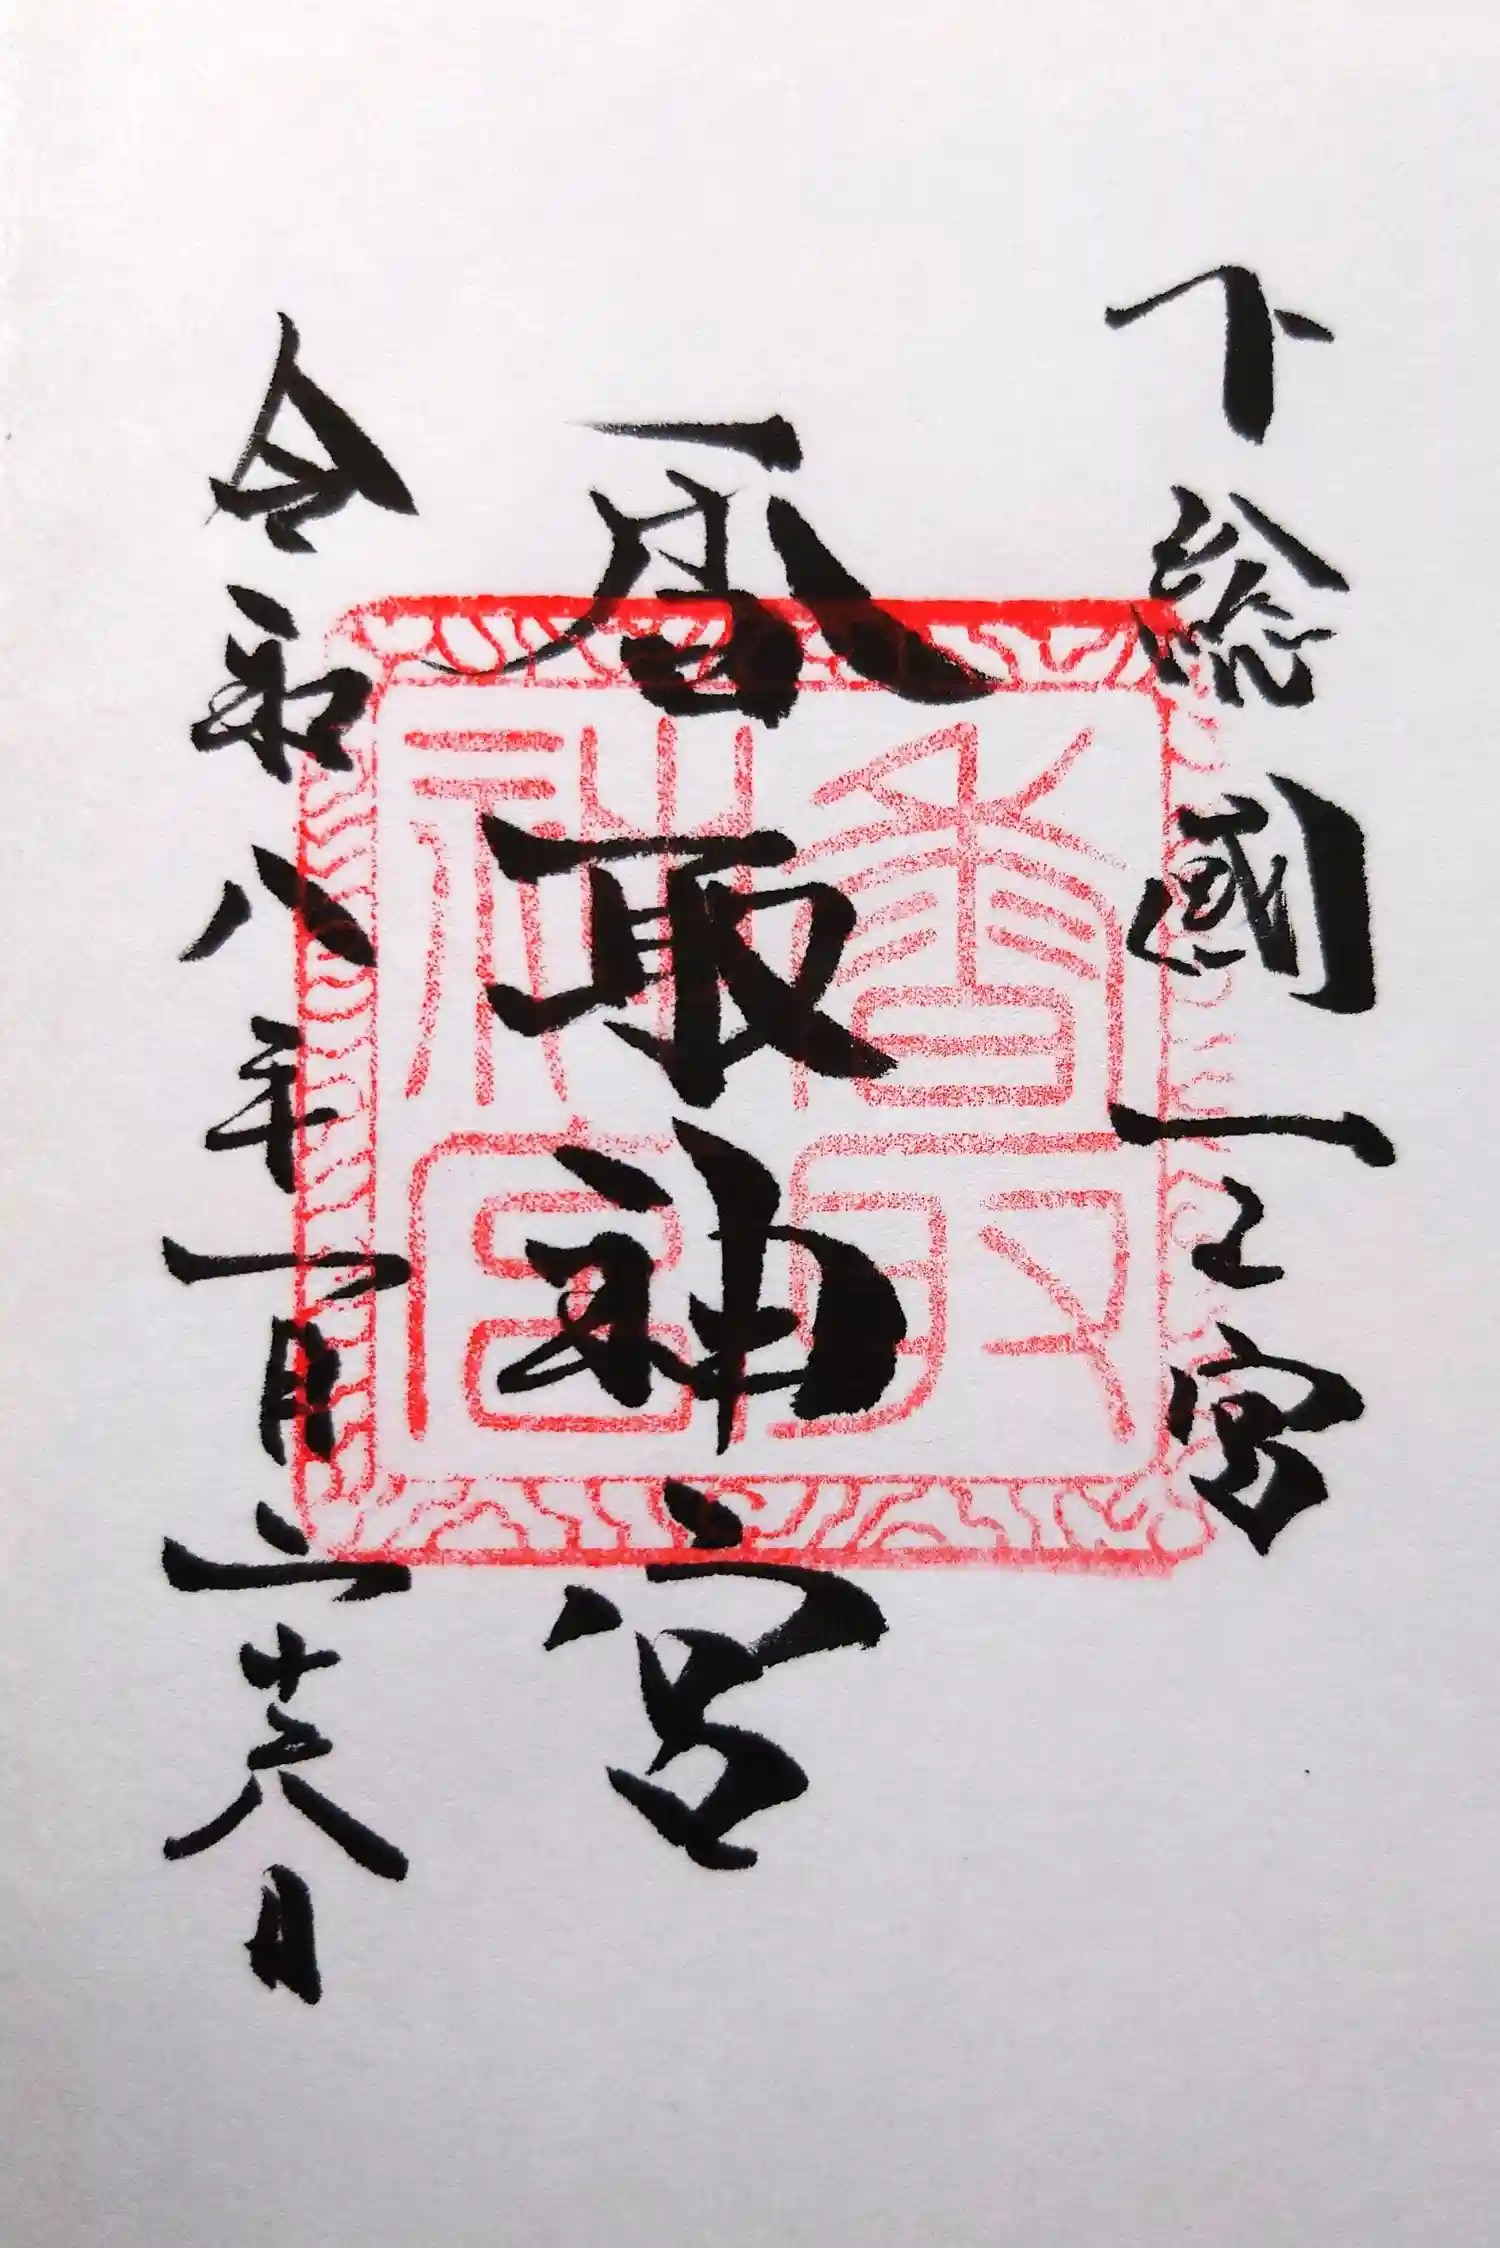 下総國一之宮
香取神宮
令和八年一月二十六日
香取神宮